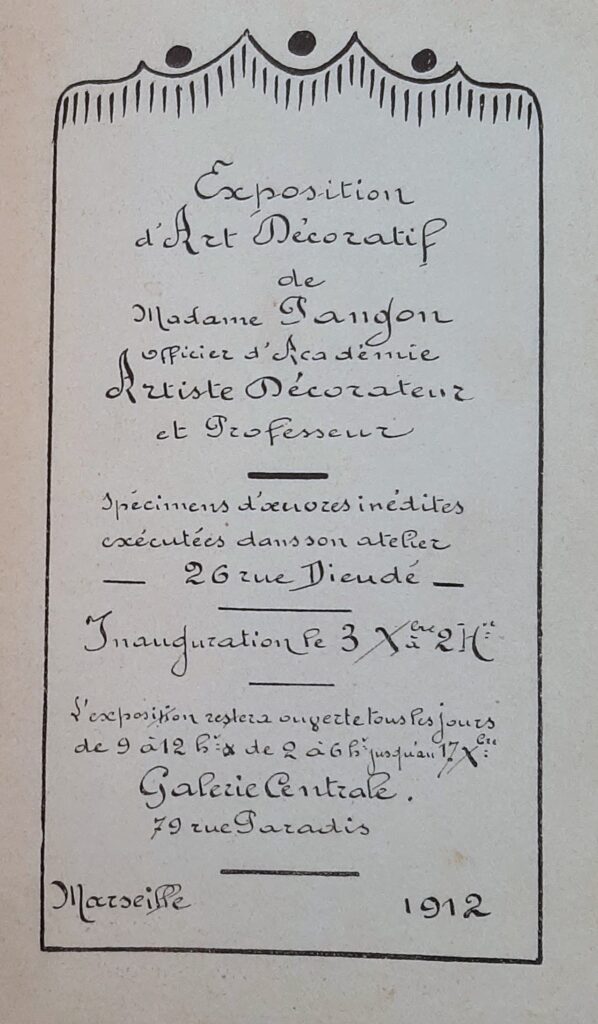 Exposition
d'Art Décoratif
de
Madame Pangon
officier d'Académie
Artiste Décorateur
et Professeur
Spécimens d'œuvres inédites
exécutées dans son atelier
— 26 rue Dieudé —
Inauguration le 3 Xbre à 2 H
L'exposition restera ouverte tous les jours
de 9 à 12 h & de 2 à 6 h jusqu'au 17 Xbre
Galerie Centrale.
79 rue Paradis
Marseille 1912